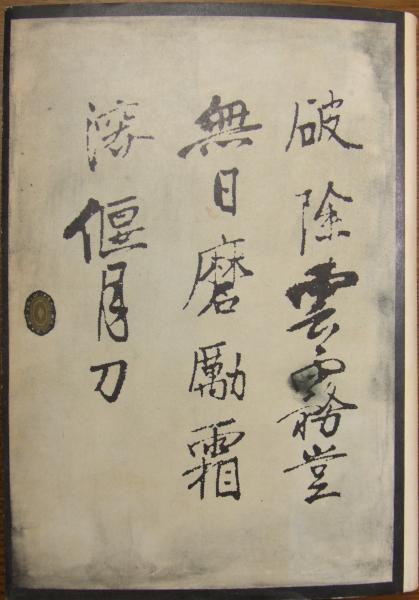 破除雲霧豈
無日磨勵霜
偃月刀